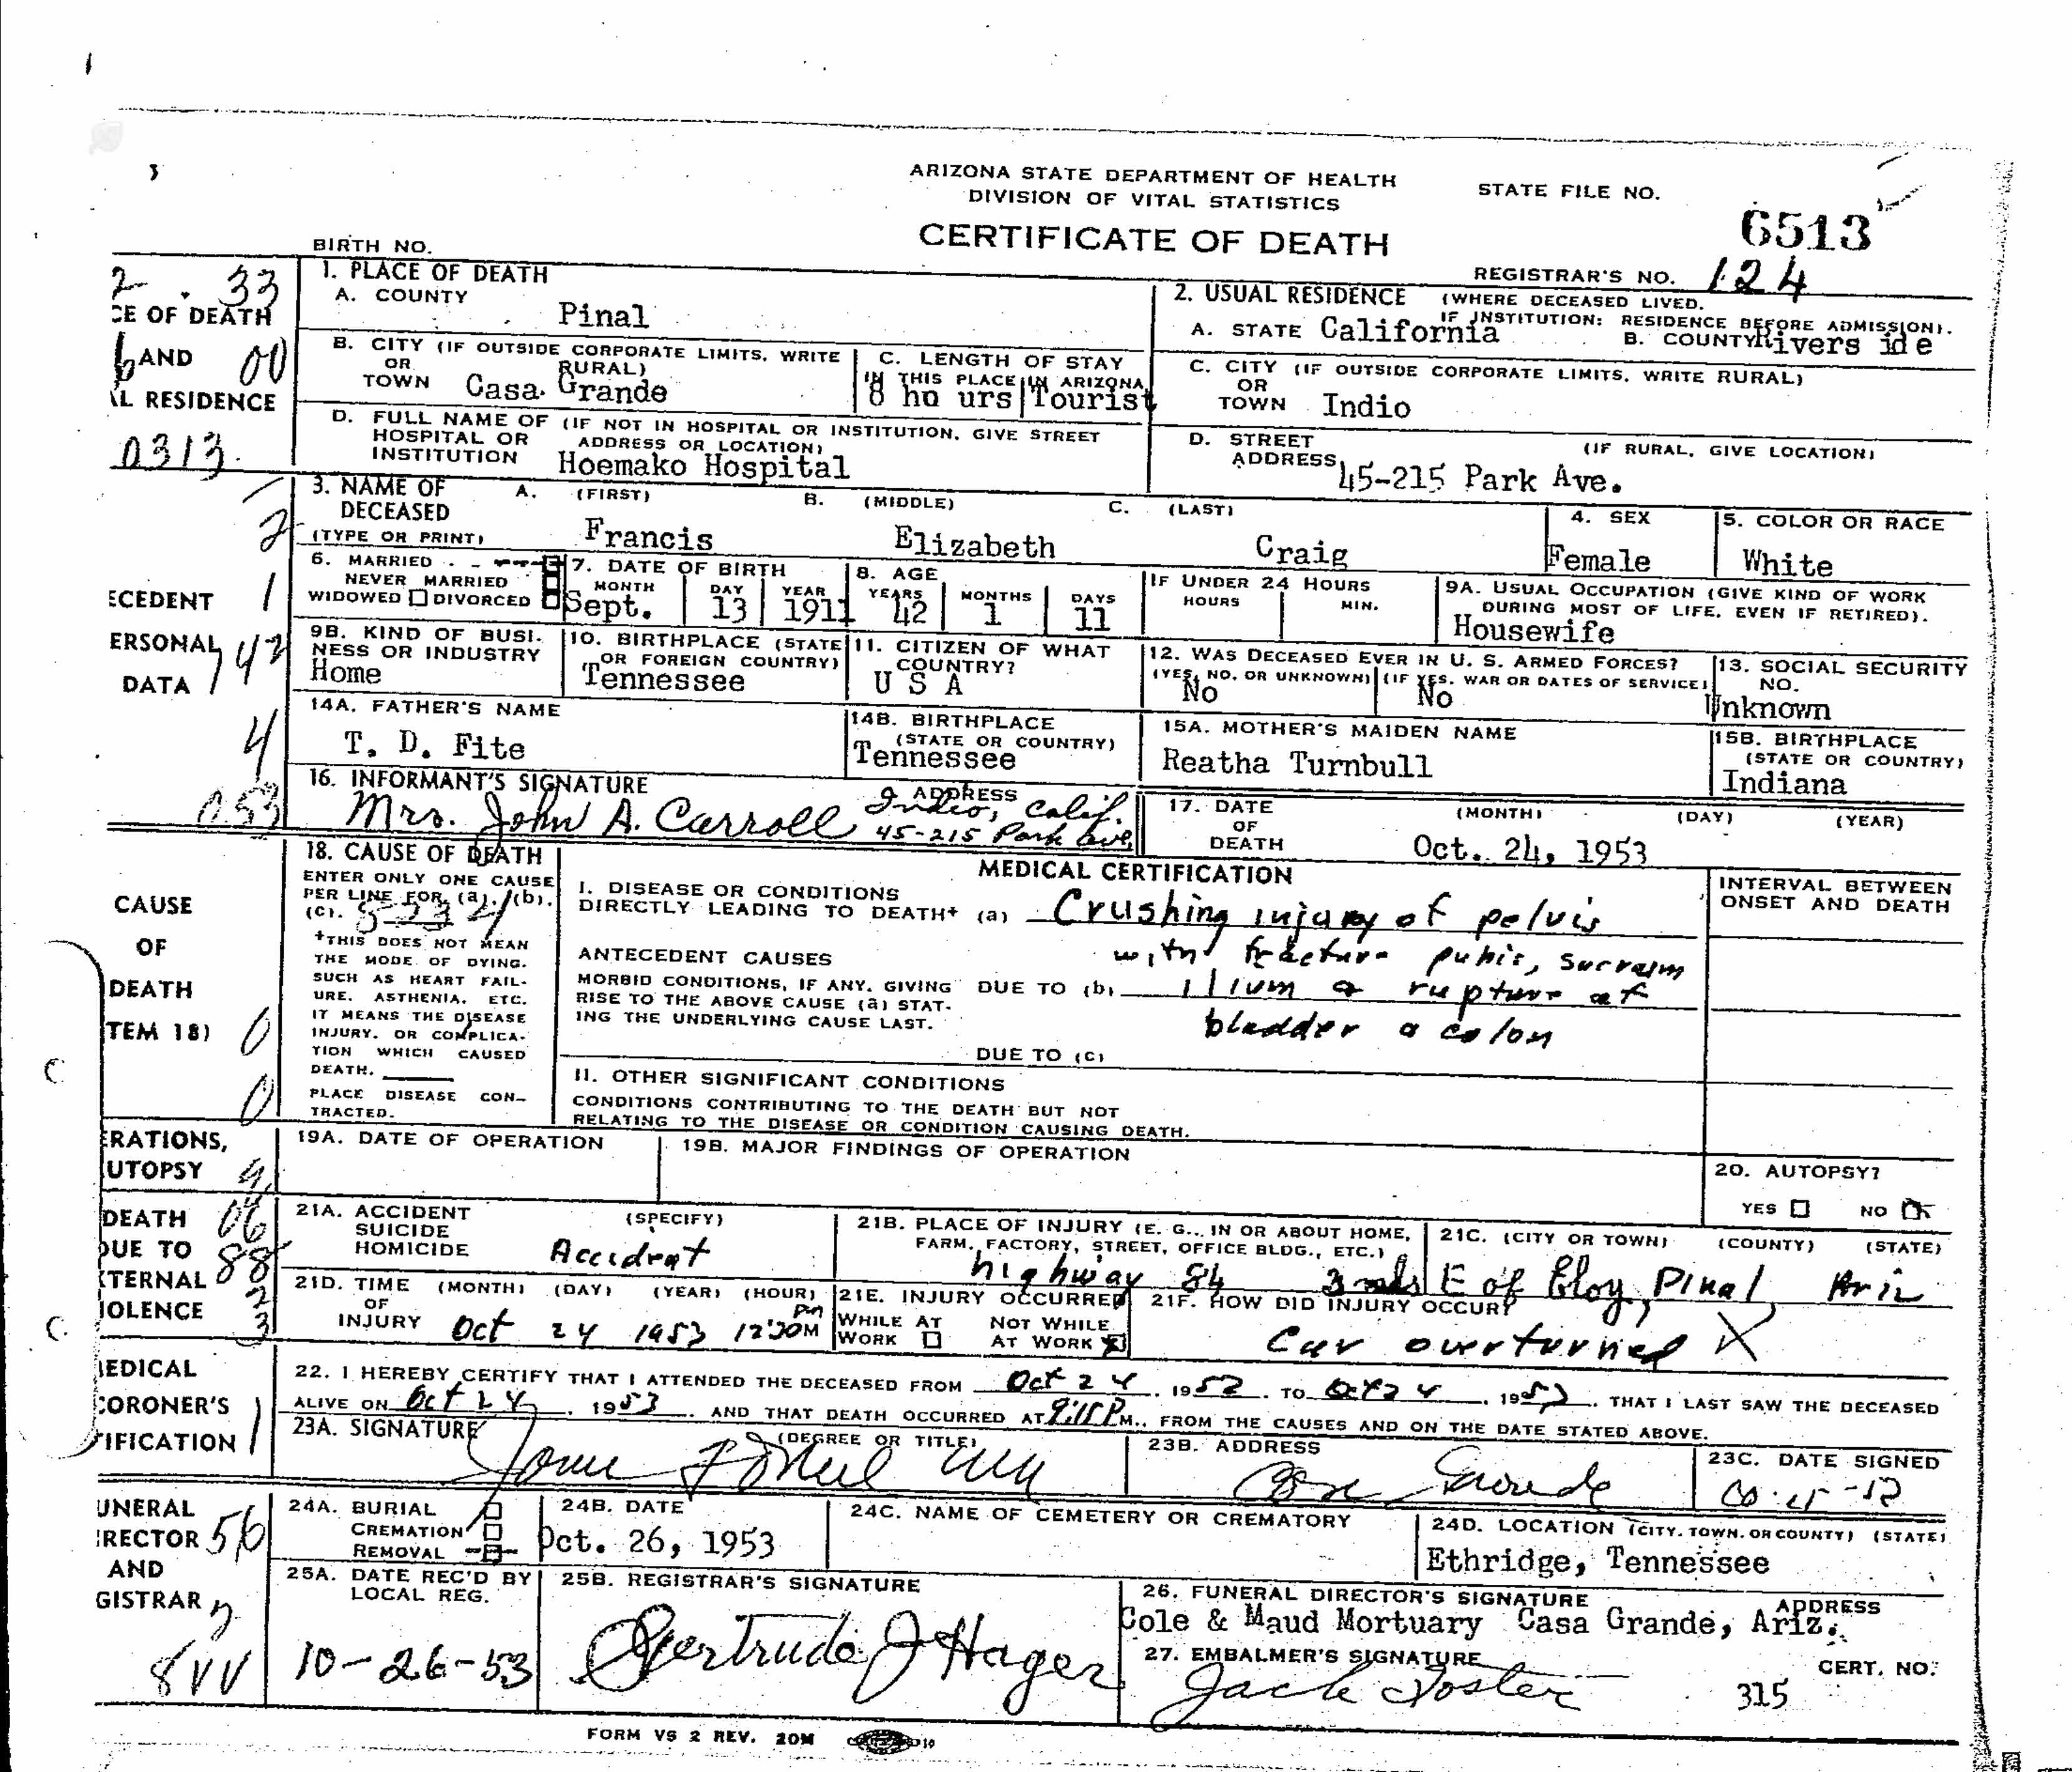 ARIZONA STATE DEPARTMENT OF HEALTH
DIVISION OF VITAL STATISTICS
STATE FILE NO. 6513
CERTIFICATE OF DEATH
BIRTH NO.
REGISTRAR'S NO. 124
2 . 33
CE OF DEATH
6 AND 00
AL RESIDENCE
0313
1. PLACE OF DEATH
A. COUNTY
Pinal
2. USUAL RESIDENCE (WHERE DECEASED LIVED.
IF INSTITUTION: RESIDENCE BEFORE ADMISSION).
A. STATE California B. COUNTY Rivers ide
B. CITY (IF OUTSIDE CORPORATE LIMITS, WRITE
OR RURAL)
TOWN Casa Grande
C. LENGTH OF STAY
IN THIS PLACE IN ARIZONA
8 ho urs Tourist
C. CITY (IF OUTSIDE CORPORATE LIMITS, WRITE RURAL)
OR
TOWN Indio
D. FULL NAME OF (IF NOT IN HOSPITAL OR INSTITUTION, GIVE STREET
HOSPITAL OR ADDRESS OR LOCATION)
INSTITUTION Hoemako Hospital
D. STREET (IF RURAL, GIVE LOCATION)
ADDRESS 45-215 Park Ave.
3. NAME OF DECEASED
(TYPE OR PRINT)
A. (FIRST) B. (MIDDLE) C. (LAST)
Francis Elizabeth Craig
4. SEX
Female
5. COLOR OR RACE
White
2
1
ECEDENT
ERSONAL
DATA
1 42
4
053
6. MARRIED
NEVER MARRIED
WIDOWED DIVORCED
7. DATE OF BIRTH
MONTH DAY YEAR
Sept. 13 1911
8. AGE
YEARS MONTHS DAYS
42 1 11
IF UNDER 24 HOURS
HOURS MIN.
9A. USUAL OCCUPATION (GIVE KIND OF WORK
DURING MOST OF LIFE, EVEN IF RETIRED).
Housewife
9B. KIND OF BUSI-
NESS OR INDUSTRY
Home
10. BIRTHPLACE (STATE
OR FOREIGN COUNTRY)
Tennessee
11. CITIZEN OF WHAT
COUNTRY?
U S A
12. WAS DECEASED EVER IN U. S. ARMED FORCES?
(YES, NO, OR UNKNOWN) (IF YES, WAR OR DATES OF SERVICE)
No No
13. SOCIAL SECURITY
NO.
Unknown
14A. FATHER'S NAME
T. D. Fite
14B. BIRTHPLACE
(STATE OR COUNTRY)
Tennessee
15A. MOTHER'S MAIDEN NAME
Reatha Turnbull
15B. BIRTHPLACE
(STATE OR COUNTRY)
Indiana
16. INFORMANT'S SIGNATURE ADDRESS
Mrs. John A. Carroll Indio, Calif.
45-215 Park Ave
17. DATE (MONTH) (DAY) (YEAR)
OF
DEATH Oct. 24, 1953
CAUSE
OF
DEATH
TEM 18)
0
0
18. CAUSE OF DEATH
ENTER ONLY ONE CAUSE
PER LINE FOR (a), (b),
(c).
+THIS DOES NOT MEAN
THE MODE OF DYING,
SUCH AS HEART FAIL-
URE, ASTHENIA, ETC.
IT MEANS THE DISEASE
INJURY, OR COMPLICA-
TION WHICH CAUSED
DEATH.
PLACE DISEASE CON-
TRACTED.
MEDICAL CERTIFICATION
INTERVAL BETWEEN
ONSET AND DEATH
I. DISEASE OR CONDITIONS
DIRECTLY LEADING TO DEATH+ (a) Crushing injury of pelvis
with fracture pubis, sucraim
ANTECEDENT CAUSES
MORBID CONDITIONS, IF ANY, GIVING DUE TO (b) ilium & rupture of
RISE TO THE ABOVE CAUSE (a) STAT-
ING THE UNDERLYING CAUSE LAST.
bladder & colon
DUE TO (c)
II. OTHER SIGNIFICANT CONDITIONS
CONDITIONS CONTRIBUTING TO THE DEATH BUT NOT
RELATING TO THE DISEASE OR CONDITION CAUSING DEATH.
ERATIONS,
UTOPSY
19A. DATE OF OPERATION
19B. MAJOR FINDINGS OF OPERATION
20. AUTOPSY?
YES NO
DEATH 06
DUE TO 88
TERNAL 2
IOLENCE 3
21A. ACCIDENT (SPECIFY)
SUICIDE
HOMICIDE Accident
21B. PLACE OF INJURY (E. G., IN OR ABOUT HOME,
FARM, FACTORY, STREET, OFFICE BLDG., ETC.)
highway 84
21C. (CITY OR TOWN) (COUNTY) (STATE)
E of Eloy, Pinal, Ariz
21D. TIME (MONTH) (DAY) (YEAR) (HOUR)
OF
INJURY Oct 24 1953 12:30 PM
21E. INJURY OCCURRED
WHILE AT NOT WHILE
WORK AT WORK
21F. HOW DID INJURY OCCUR?
Car overturned X
MEDICAL
CORONER'S
TIFICATION 1
22. I HEREBY CERTIFY THAT I ATTENDED THE DECEASED FROM Oct 24, 1953, TO Oct 24, 1953, THAT I LAST SAW THE DECEASED
ALIVE ON Oct 24, 1953, AND THAT DEATH OCCURRED AT 9:15 P M., FROM THE CAUSES AND ON THE DATE STATED ABOVE.
23A. SIGNATURE (DEGREE OR TITLE)
23B. ADDRESS
Casa Grande
23C. DATE SIGNED
UNERAL
RECTOR 56
AND
GISTRAR
24A. BURIAL
CREMATION
REMOVAL
24B. DATE
Oct. 26, 1953
24C. NAME OF CEMETERY OR CREMATORY
24D. LOCATION (CITY, TOWN, OR COUNTY) (STATE)
Ethridge, Tennessee
25A. DATE REC'D BY
LOCAL REG.
10-26-53
25B. REGISTRAR'S SIGNATURE
Gertrude J Hager
26. FUNERAL DIRECTOR'S SIGNATURE ADDRESS
Cole & Maud Mortuary Casa Grande, Ariz.
27. EMBALMER'S SIGNATURE CERT. NO.
Jack Foster 315
FORM VS 2 REV. 20M